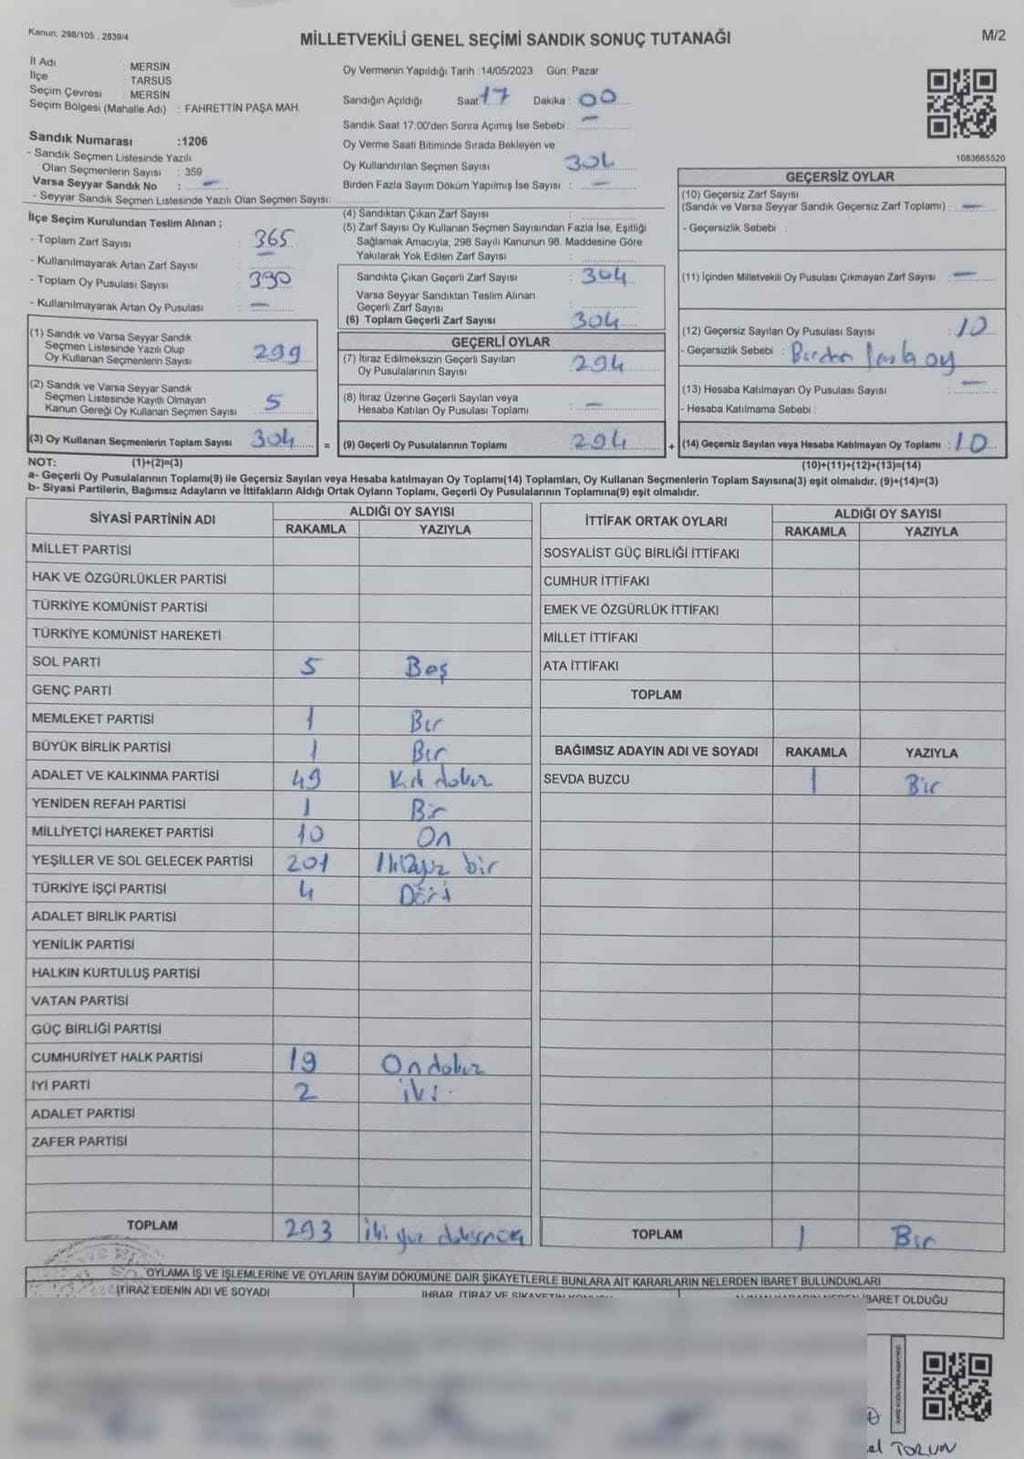 Kanun, 298/105 , 2839/4
MİLLETVEKİLİ GENEL SEÇİMİ SANDIK SONUÇ TUTANAĞI
M/2
İl Adı : MERSİN
İlçe : TARSUS
Seçim Çevresi : MERSİN
Seçim Bölgesi (Mahalle Adı) : FAHRETTİN PAŞA MAH.
Sandık Numarası :1206
- Sandık Seçmen Listesinde Yazılı
Olan Seçmenlerin Sayısı : 359
Varsa Seyyar Sandık No : —
- Seyyar Sandık Seçmen Listesinde Yazılı Olan Seçmen Sayısı:
Oy Vermenin Yapıldığı Tarih :14/05/2023 Gün: Pazar
Sandığın Açıldığı Saat: 17 Dakika : 00
Sandık Saat 17:00'den Sonra Açımış İse Sebebi : —
Oy Verme Saati Bitiminde Sırada Bekleyen ve
Oy Kullandırılan Seçmen Sayısı : 304
Birden Fazla Sayım Döküm Yapılmış İse Sayısı : —
1083665520
İlçe Seçim Kurulundan Teslim Alınan ;
- Toplam Zarf Sayısı : 365
- Kullanılmayarak Artan Zarf Sayısı : —
- Toplam Oy Pusulası Sayısı : 390
- Kullanılmayarak Artan Oy Pusulası : —
(1) Sandık ve Varsa Seyyar Sandık
Seçmen Listesinde Yazılı Olup
Oy Kullanan Seçmenlerin Sayısı : 299
(2) Sandık ve Varsa Seyyar Sandık
Seçmen Listesinde Kayıtlı Olmayan
Kanun Gereği Oy Kullanan Seçmen Sayısı : 5
(3) Oy Kullanan Seçmenlerin Toplam Sayısı : 304 =
(4) Sandıktan Çıkan Zarf Sayısı :
(5) Zarf Sayısı Oy Kullanan Seçmen Sayısından Fazla İse, Eşitliği
Sağlamak Amacıyla; 298 Sayılı Kanunun 98. Maddesine Göre
Yakılarak Yok Edilen Zarf Sayısı :
Sandıkta Çıkan Geçerli Zarf Sayısı : 304
Varsa Seyyar Sandıktan Teslim Alınan
Geçerli Zarf Sayısı :
(6) Toplam Geçerli Zarf Sayısı : 304
GEÇERLİ OYLAR
(7) İtiraz Edilmeksizin Geçerli Sayılan
Oy Pusulalarının Sayısı : 294
(8) İtiraz Üzerine Geçerli Sayılan veya
Hesaba Katılan Oy Pusulası Toplamı : —
(9) Geçerli Oy Pusulalarının Toplamı : 294 +
GEÇERSİZ OYLAR
(10) Geçersiz Zarf Sayısı
(Sandık ve Varsa Seyyar Sandık Geçersiz Zarf Toplamı) : —
- Geçersizlik Sebebi :
(11) İçinden Milletvekili Oy Pusulası Çıkmayan Zarf Sayısı : —
(12) Geçersiz Sayılan Oy Pusulası Sayısı : 10
- Geçersizlik Sebebi : Birden fazla oy
(13) Hesaba Katılmayan Oy Pusulası Sayısı : —
- Hesaba Katılmama Sebebi :
(14) Geçersiz Sayılan veya Hesaba Katılmayan Oy Toplamı : 10
NOT: (1)+(2)=(3)
(10)+(11)+(12)+(13)=(14)
a- Geçerli Oy Pusulalarının Toplamı(9) ile Geçersiz Sayılan veya Hesaba katılmayan Oy Toplamı(14) Toplamları, Oy Kullanan Seçmenlerin Toplam Sayısına(3) eşit olmalıdır. (9)+(14)=(3)
b- Siyasi Partilerin, Bağımsız Adayların ve İttifakların Aldığı Ortak Oyların Toplamı, Geçerli Oy Pusulalarının Toplamına(9) eşit olmalıdır.
SİYASİ PARTİNİN ADI
ALDIĞI OY SAYISI
RAKAMLA YAZIYLA
MİLLET PARTİSİ
HAK VE ÖZGÜRLÜKLER PARTİSİ
TÜRKİYE KOMÜNİST PARTİSİ
TÜRKİYE KOMÜNİST HAREKETİ
SOL PARTİ 5 Beş
GENÇ PARTİ
MEMLEKET PARTİSİ 1 Bir
BÜYÜK BİRLİK PARTİSİ 1 Bir
ADALET VE KALKINMA PARTİSİ 49 Kırk dokuz
YENİDEN REFAH PARTİSİ 1 Bir
MİLLİYETÇİ HAREKET PARTİSİ 10 On
YEŞİLLER VE SOL GELECEK PARTİSİ 201 İkiyüz bir
TÜRKİYE İŞÇİ PARTİSİ 4 Dört
ADALET BİRLİK PARTİSİ
YENİLİK PARTİSİ
HALKIN KURTULUŞ PARTİSİ
VATAN PARTİSİ
GÜÇ BİRLİĞİ PARTİSİ
CUMHURİYET HALK PARTİSİ 19 On dokuz
İYİ PARTİ 2 iki
ADALET PARTİSİ
ZAFER PARTİSİ
TOPLAM 293 iki yüz
İTTİFAK ORTAK OYLARI
ALDIĞI OY SAYISI
RAKAMLA YAZIYLA
SOSYALİST GÜÇ BİRLİĞİ İTTİFAKI
CUMHUR İTTİFAKI
EMEK VE ÖZGÜRLÜK İTTİFAKI
MİLLET İTTİFAKI
ATA İTTİFAKI
TOPLAM
BAĞIMSIZ ADAYIN ADI VE SOYADI RAKAMLA YAZIYLA
SEVDA BUZCU 1 Bir
TOPLAM 1 Bir
OYLAMA İŞ VE İŞLEMLERİNE VE OYLARIN SAYIM DÖKÜMÜNE DAİR ŞİKAYETLERLE BUNLARA AİT KARARLARIN NELERDEN İBARET BULUNDUKLARI
İTİRAZ EDENİN ADI VE SOYADI
İHBAR, İTİRAZ VE ŞİKAYETİN KONUSU
İBARET OLDUĞU
el TORUN